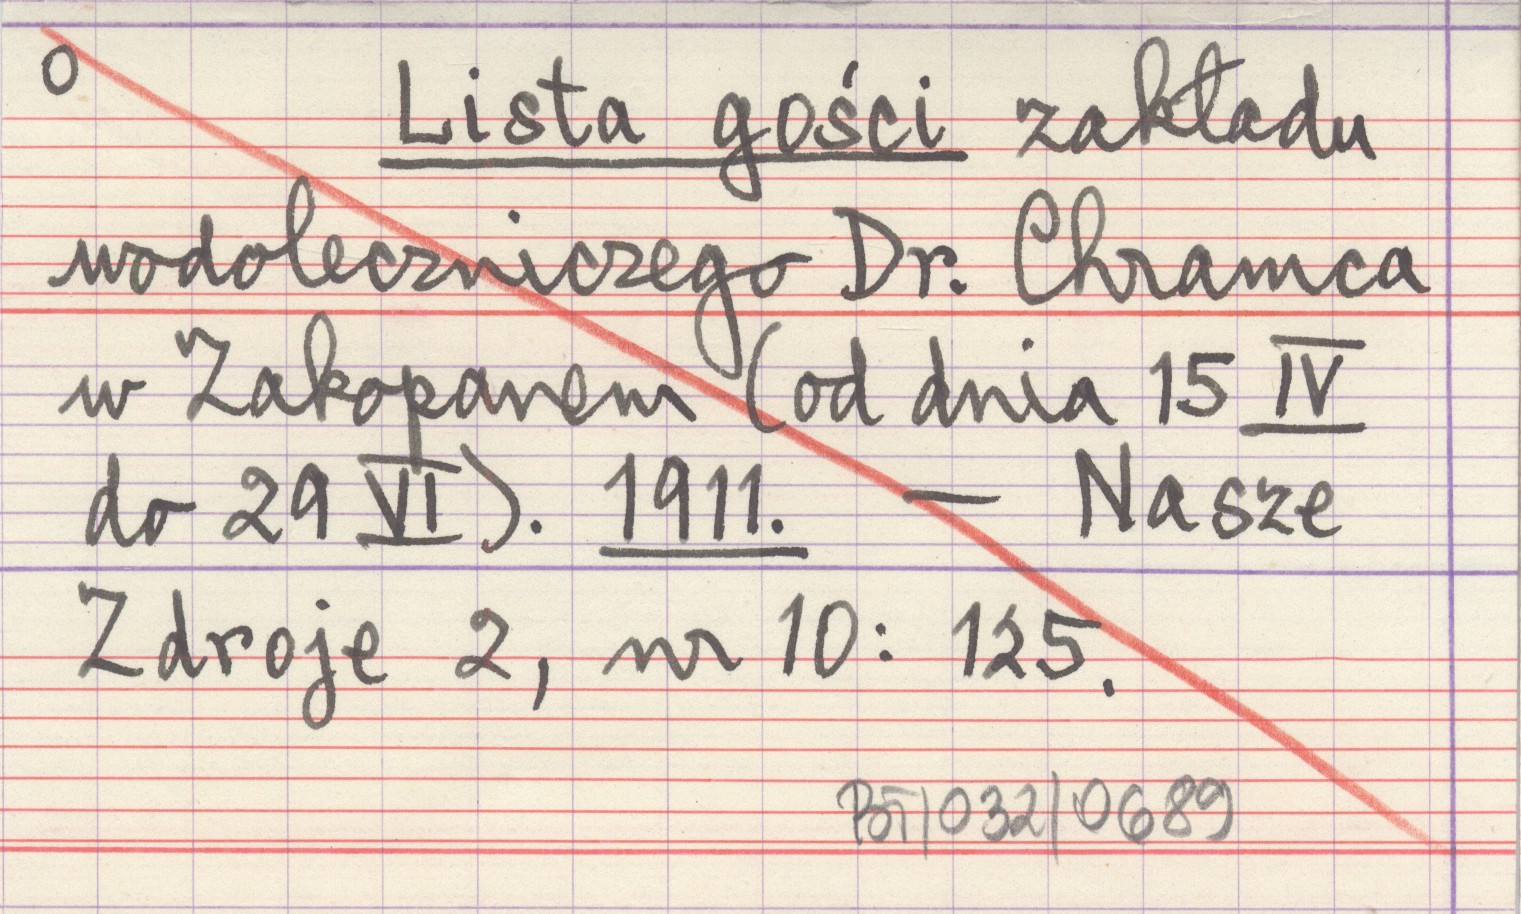 O
Lista gości zakładu
wodoleczniczego Dr. Chramca
w Zakopanem (od dnia 15 IV
do 29 VI). 1911. — Nasze
Zdroje 2, nr 10: 125.
POT/032/0689